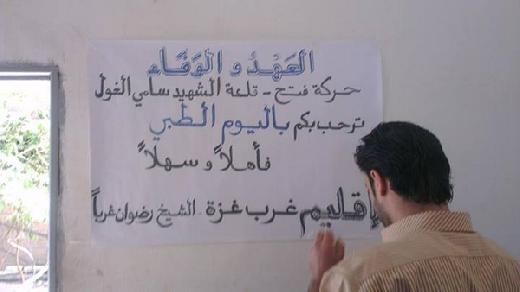 العهد و الوفاء
حركة فتح - قلعة الشهيد سامي الغول
ترحب بكم باليوم الطبي
فأهلاً و سهلاً
إقليم غرب غزة - الشيخ رضوان غرباً